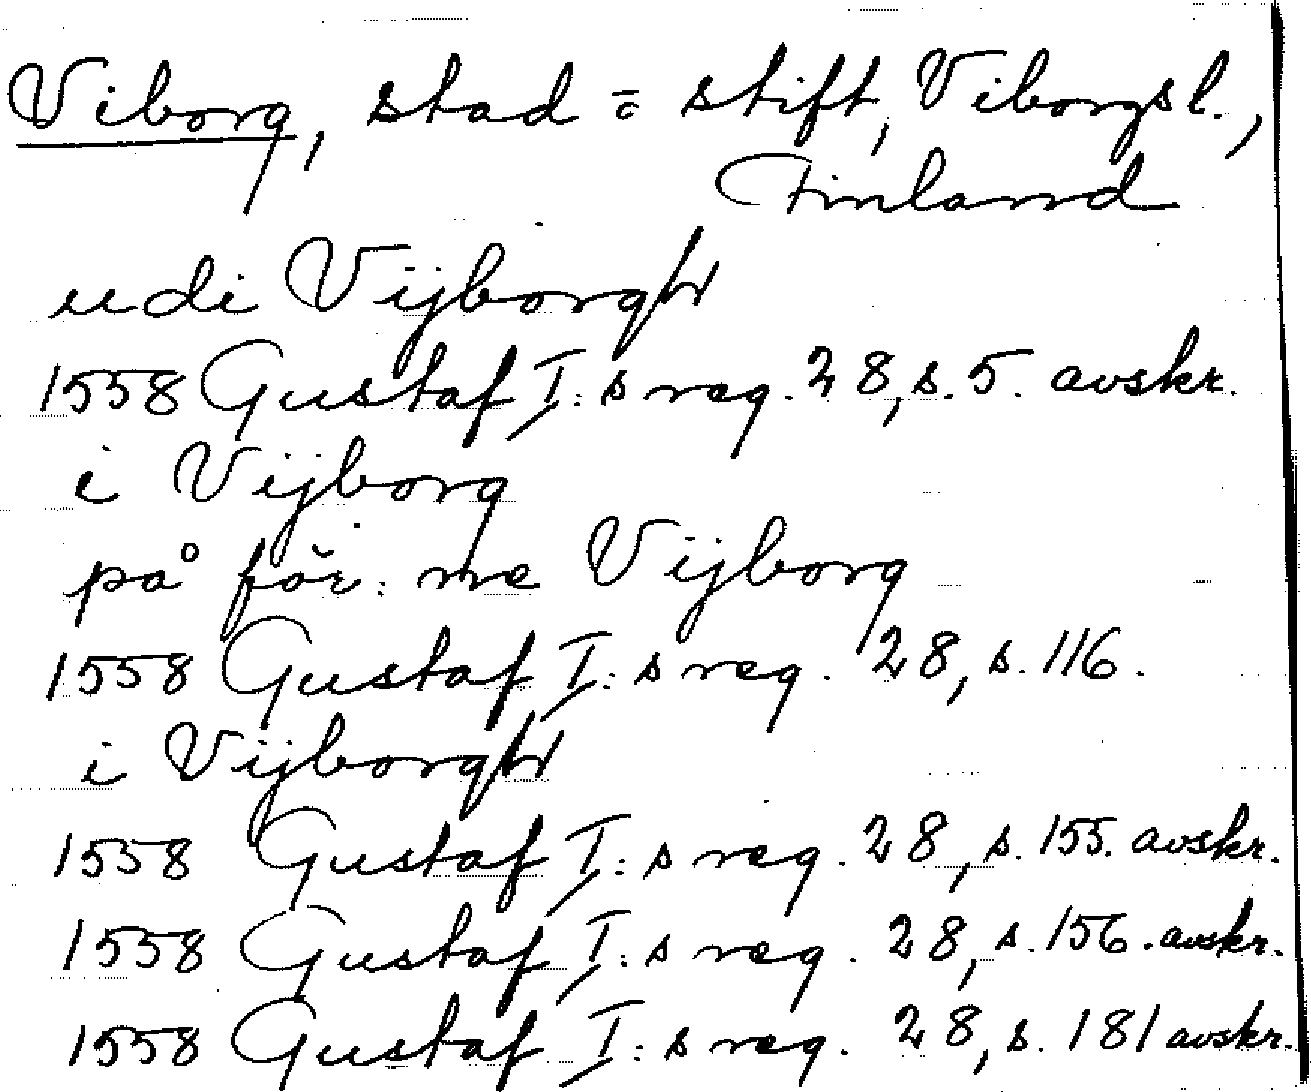 Viborg, stad o. stift, Viborgs l.,
Finland
udi Vijborgh
1558 Gustaf I:s reg. 28, s. 5. avskr.
i Vijborg
på för:ne Vijborg
1558 Gustaf I:s reg. 28, s. 116.
i Vijborgh
1558 Gustaf I:s reg. 28, s. 155. avskr.
1558 Gustaf I:s reg. 28, s. 156. avskr.
1558 Gustaf I:s reg. 28, s. 181 avskr.